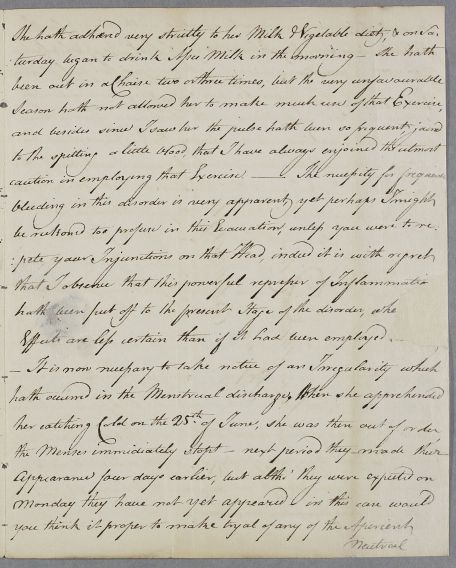 She hath adhered very strictly to her Milk & Vegetable diet, & on Sa-
turday began to drink Asses Milk in the morning — She hath
been out in a Chaise two or three times, but the very unfavourable
Season hath not allowed her to make much use of that Exercise,
and besides since I saw her the pulse hath been so frequent, joined
to the spitting a little blood, that I have always enjoined the utmost
caution in employing that Exercise. — The necessity for frequent
bleeding in this disorder is very apparent, yet perhaps I might
be reckoned too profuse in this Evacuation, unless you were to re-
:pete your Injunctions on that Head, indeed it is with regret
that I observe that this powerful represser of Inflammation
hath been put off to the present Stage of the disorder, who
Effects are less certain than if it had been employed
— It is now necessary to take notice of an Irregularity which
hath occured in the Menstrual discharge, When she apprehended
her catching Cold on the 25th of June, she was then out of order
the Menses immidiately stopt — next period they made their
Appearance four days earlier, but altho' they were expected on
Monday they have not yet appeared — in this case would
you think it proper to make tryal of any of the Aperient
Neutral